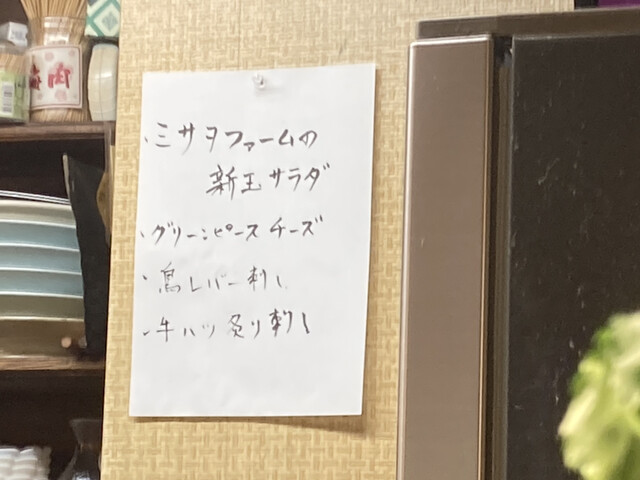 ・ミサヲファームの
新玉サラダ
・グリーンピースチーズ
・鳥レバー刺し
・牛ハツ炙り刺し